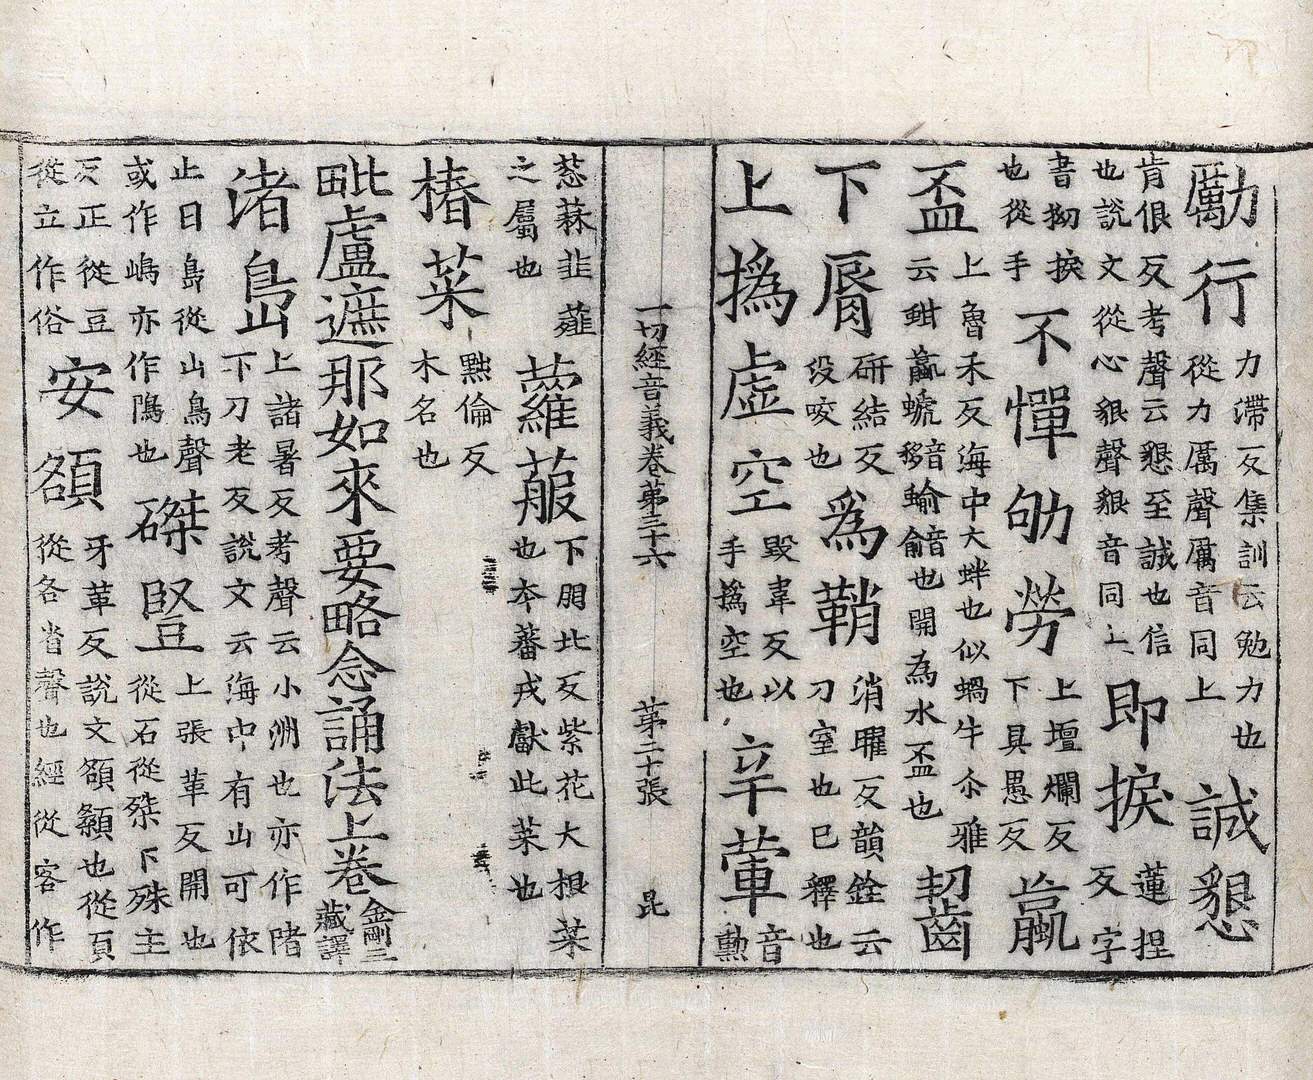 勵行力滯反集訓云勉力也從力厲聲厲音同上誠懇
肯佷反考聲云懇至誠也信也說文從心貇聲貇音同上即捩蓮捏反字
書拗捩也從手不憚劬勞上壇爛反下具愚反蠃
盃上魯禾反海中大蚌也似蝸牛尒雅云蚹蠃螔音移蝓音俞也開為水盃也齧
下脣研結反伇咬也為鞘消曜反韻銓云刀室也已釋也
上撝虛空毀韋反以手撝空也辛葷音勳
一切經音義卷第三十六 第二十張 昆
葱蒜韭薤之屬也蘿菔下朋北反紫花大根菜也本蕃戎獻此菜也
椿菜黜倫反木名也
毗盧遮那如來要略念誦法上卷金剛三藏譯
渚島上諸暑反考聲云小洲也亦作陼下刀老反說文云海中有山可依
止曰島從山鳥聲或作嶋亦作隝也磔豎上張革反開也從石從桀下殊主
反正從豆從立作俗安額牙革反說文額顙也從頁從各省聲也經從客作